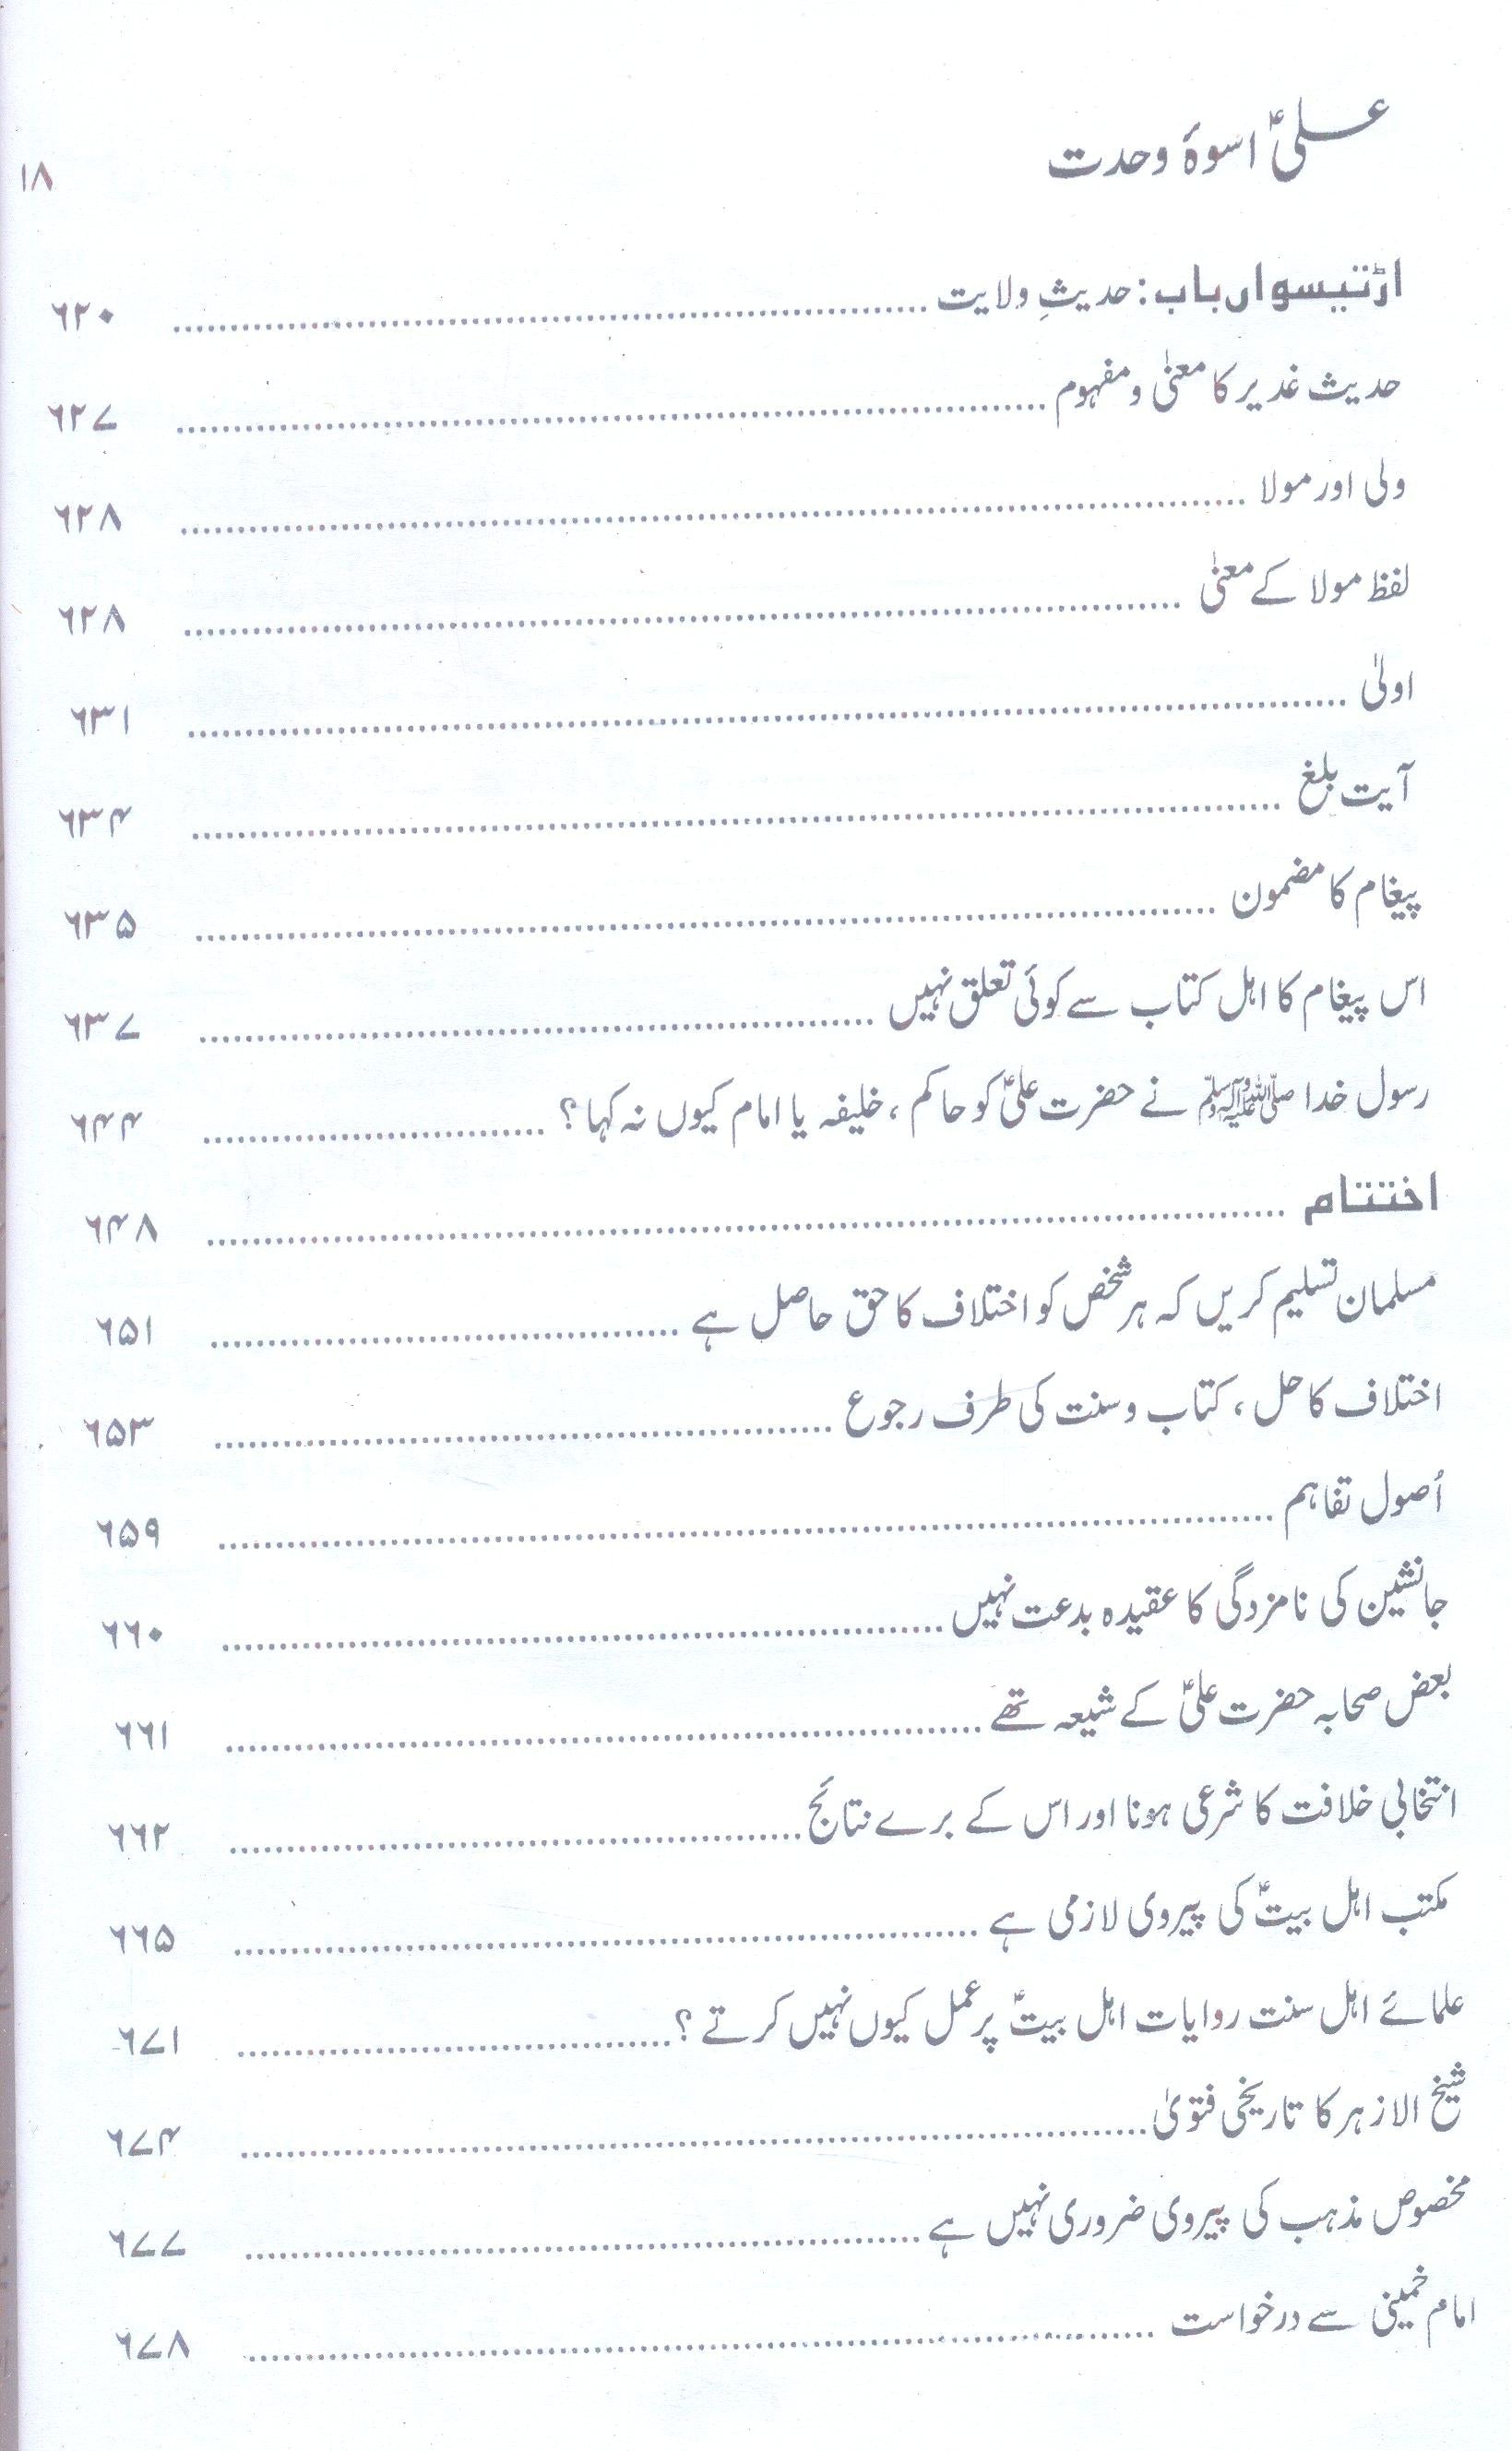 علیؑ اسوۂ وحدت ۱۸
اڑتیسواں باب: حدیثِ ولایت ........ ۶۲۰
حدیث غدیر کا معنیٰ و مفہوم ........ ۶۲۷
ولی اور مولا ........ ۶۲۸
لفظ مولا کے معنیٰ ........ ۶۲۸
اولیٰ ........ ۶۳۱
آیت بلغ ........ ۶۳۴
پیغام کا مضمون ........ ۶۳۵
اس پیغام کا اہل کتاب سے کوئی تعلق نہیں ........ ۶۳۷
رسول خدا ﷺ نے حضرت علیؑ کو حاکم، خلیفہ یا امام کیوں نہ کہا؟ ........ ۶۴۴
اختتام ........ ۶۴۸
مسلمان تسلیم کریں کہ ہر شخص کو اختلاف کا حق حاصل ہے ........ ۶۵۱
اختلاف کا حل، کتاب و سنت کی طرف رجوع ........ ۶۵۳
اُصول تفاہم ........ ۶۵۹
جانشین کی نامزدگی کا عقیدہ بدعت نہیں ........ ۶۶۰
بعض صحابہ حضرت علیؑ کے شیعہ تھے ........ ۶۶۱
انتخابی خلافت کا شرعی ہونا اور اس کے برے نتائج ........ ۶۶۲
مکتب اہل بیتؑ کی پیروی لازمی ہے ........ ۶۶۵
علمائے اہل سنت روایات اہل بیتؑ پر عمل کیوں نہیں کرتے؟ ........ ۶۷۱
شیخ الازہر کا تاریخی فتویٰ ........ ۶۷۴
مخصوص مذہب کی پیروی ضروری نہیں ہے ........ ۶۷۷
امام خمینی سے درخواست ........ ۶۷۸